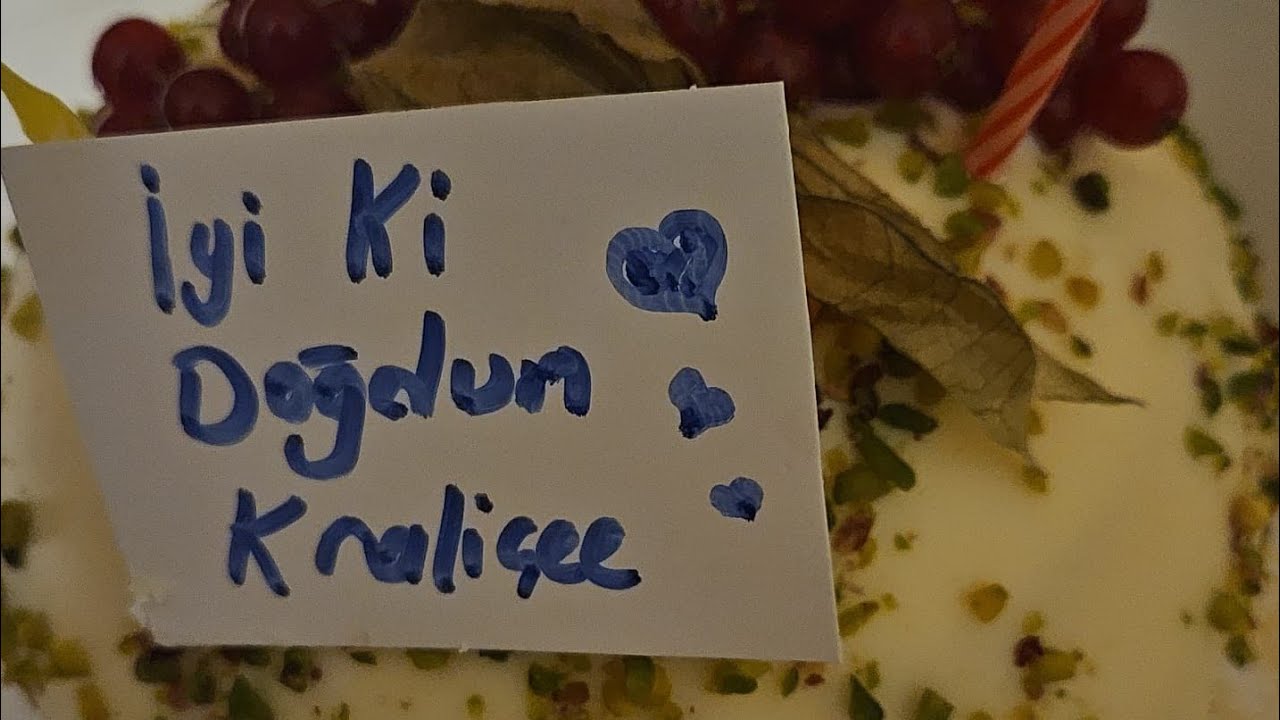 İyi Ki
Doğdun
Kraliçee